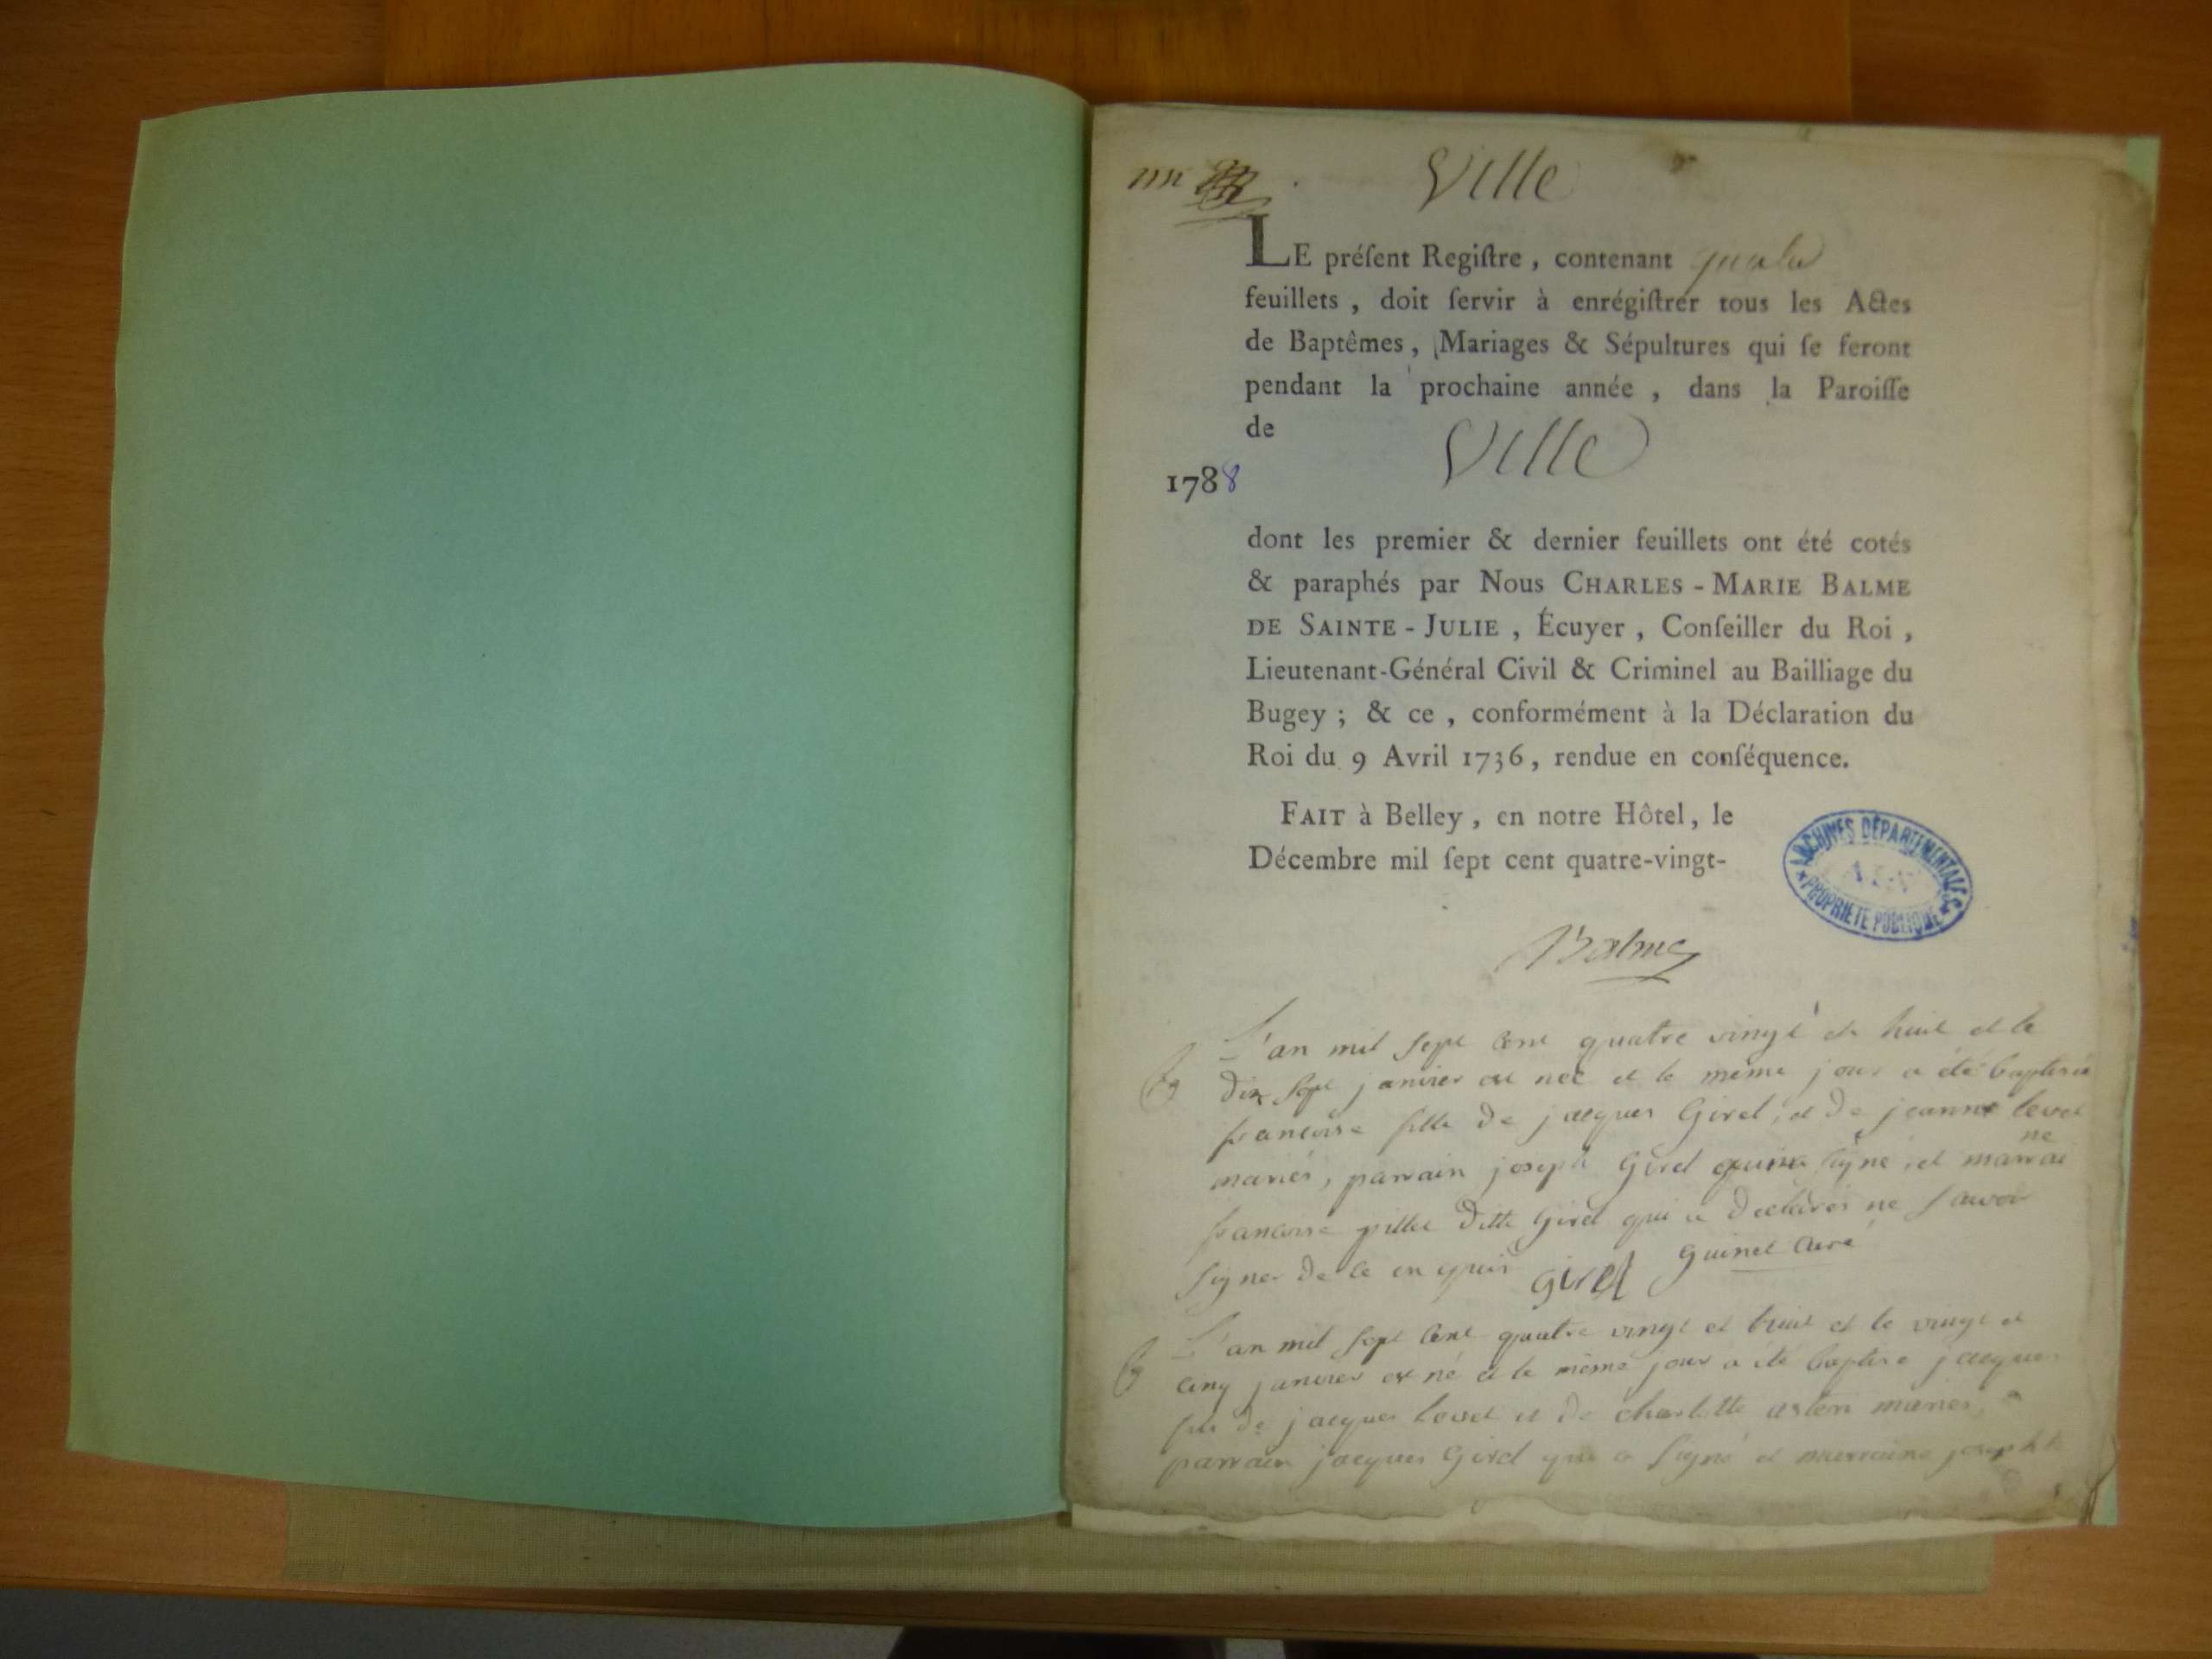 Ville
LE préſent Regiſtre, contenant
feuillets, doit ſervir à enrégiſtrer tous les Actes
de Baptêmes, Mariages & Sépultures qui ſe feront
pendant la prochaine année, dans la Paroiſſe
de Ville
1788
dont les premier & dernier feuillets ont été cotés
& paraphés par Nous CHARLES-MARIE BALME
DE SAINTE-JULIE, Écuyer, Conſeiller du Roi,
Lieutenant-Général Civil & Criminel au Bailliage du
Bugey; & ce, conformément à la Déclaration du
Roi du 9 Avril 1736, rendue en conſéquence.
FAIT à Belley, en notre Hôtel, le
Décembre mil ſept cent quatre-vingt-
ARCHIVES DÉPARTEMENTALES
PROPRIÉTÉ PUBLIQUE
Balme
L'an mil sept cent quatre vingt et huit et le
dix sept janvier est née et le même jour a été baptisée
francoise fille de jacques Girel, et de jeanne
mariés, parrain joseph Girel qui a signé, et marraine
francoise pillet ditte Girel qui a declarés ne savoir
signer de ce enquis Girel Guinet curé
L'an mil sept cent quatre vingt et huit et le vingt et
cinq janvier est né et le même jour a été baptisé jacques
fils de jacques et de charlotte mariés,
parrain jacques Girel qui a signé et marraine